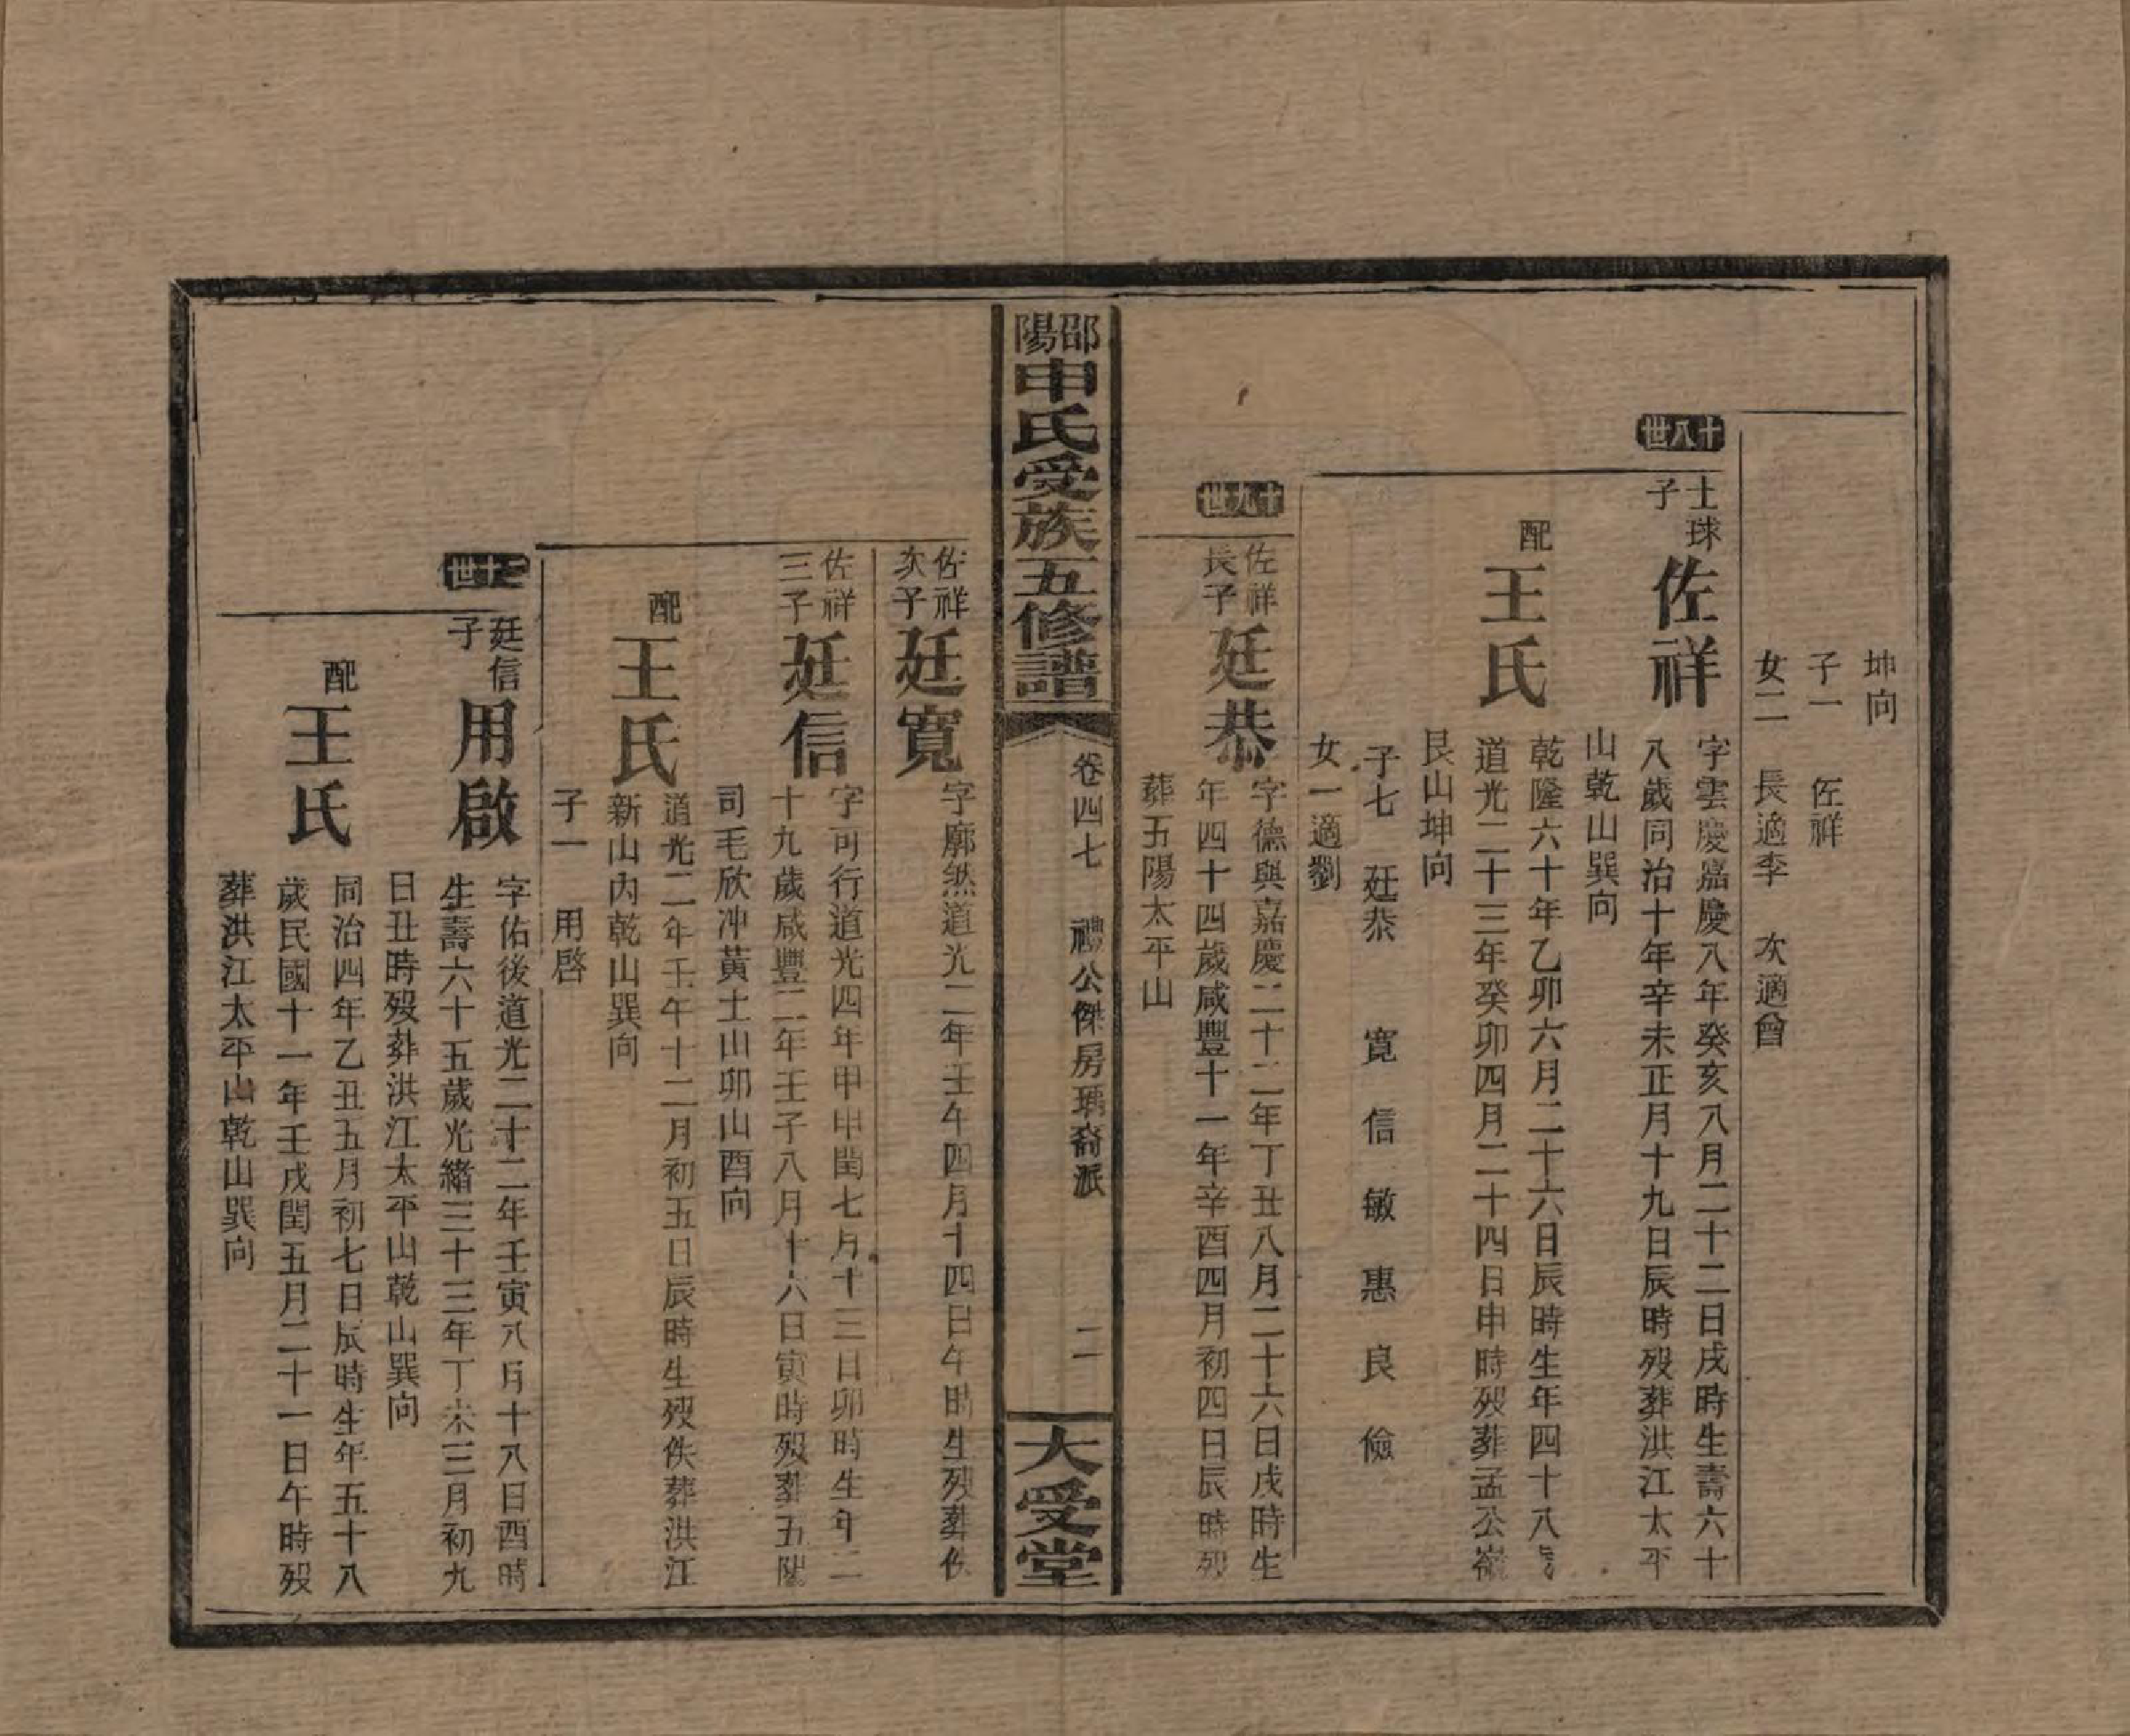 坤向
子一　佐祥
女二　長適李　次適曾
十八世
士球子
佐祥
字雲慶嘉慶八年癸亥八月二十二日戌時生壽六十
八歲同治十年辛未正月十九日辰時殁葬洪江太平
山乾山巽向
配
王氏
乾隆六十年乙卯六月二十六日辰時生年四十八歲
道光二十三年癸卯四月二十四日申時殁葬孟公嶺
艮山坤向
子七　廷恭　寬　信　敏　惠　良　儉
女一適劉
十九世
佐祥長子
廷恭
字德與嘉慶二十二年丁丑八月二十六日戌時生
年四十四歲咸豐十一年辛酉四月初四日辰時殁
葬五陽太平山
邵陽申氏受族五修譜
卷四七　禮公傑房瑀裔派　二
大受堂
佐祥次子
廷寬
字廓然道光二年壬午四月十四日午時生殁葬佚
佐祥三子
廷信
字可行道光四年甲申閏七月十二日卯時生年二
十九歲咸豐二年壬子八月十六日寅時殁葬五陽
司毛欣冲黃土山卯山酉向
配
王氏
道光二年壬午十二月初五日辰時生殁佚葬洪江
新山內乾山巽向
子一　用啓
二十世
廷信子
用啟
字佑後道光二十二年壬寅八月十八日酉時
生壽六十五歲光緒三十三年丁未三月初九
日丑時殁葬洪江太平山乾山巽向
配
王氏
同治四年乙丑五月初七日辰時生年五十八
歲民國十一年壬戌閏五月二十一日午時殁
葬洪江太平山乾山巽向